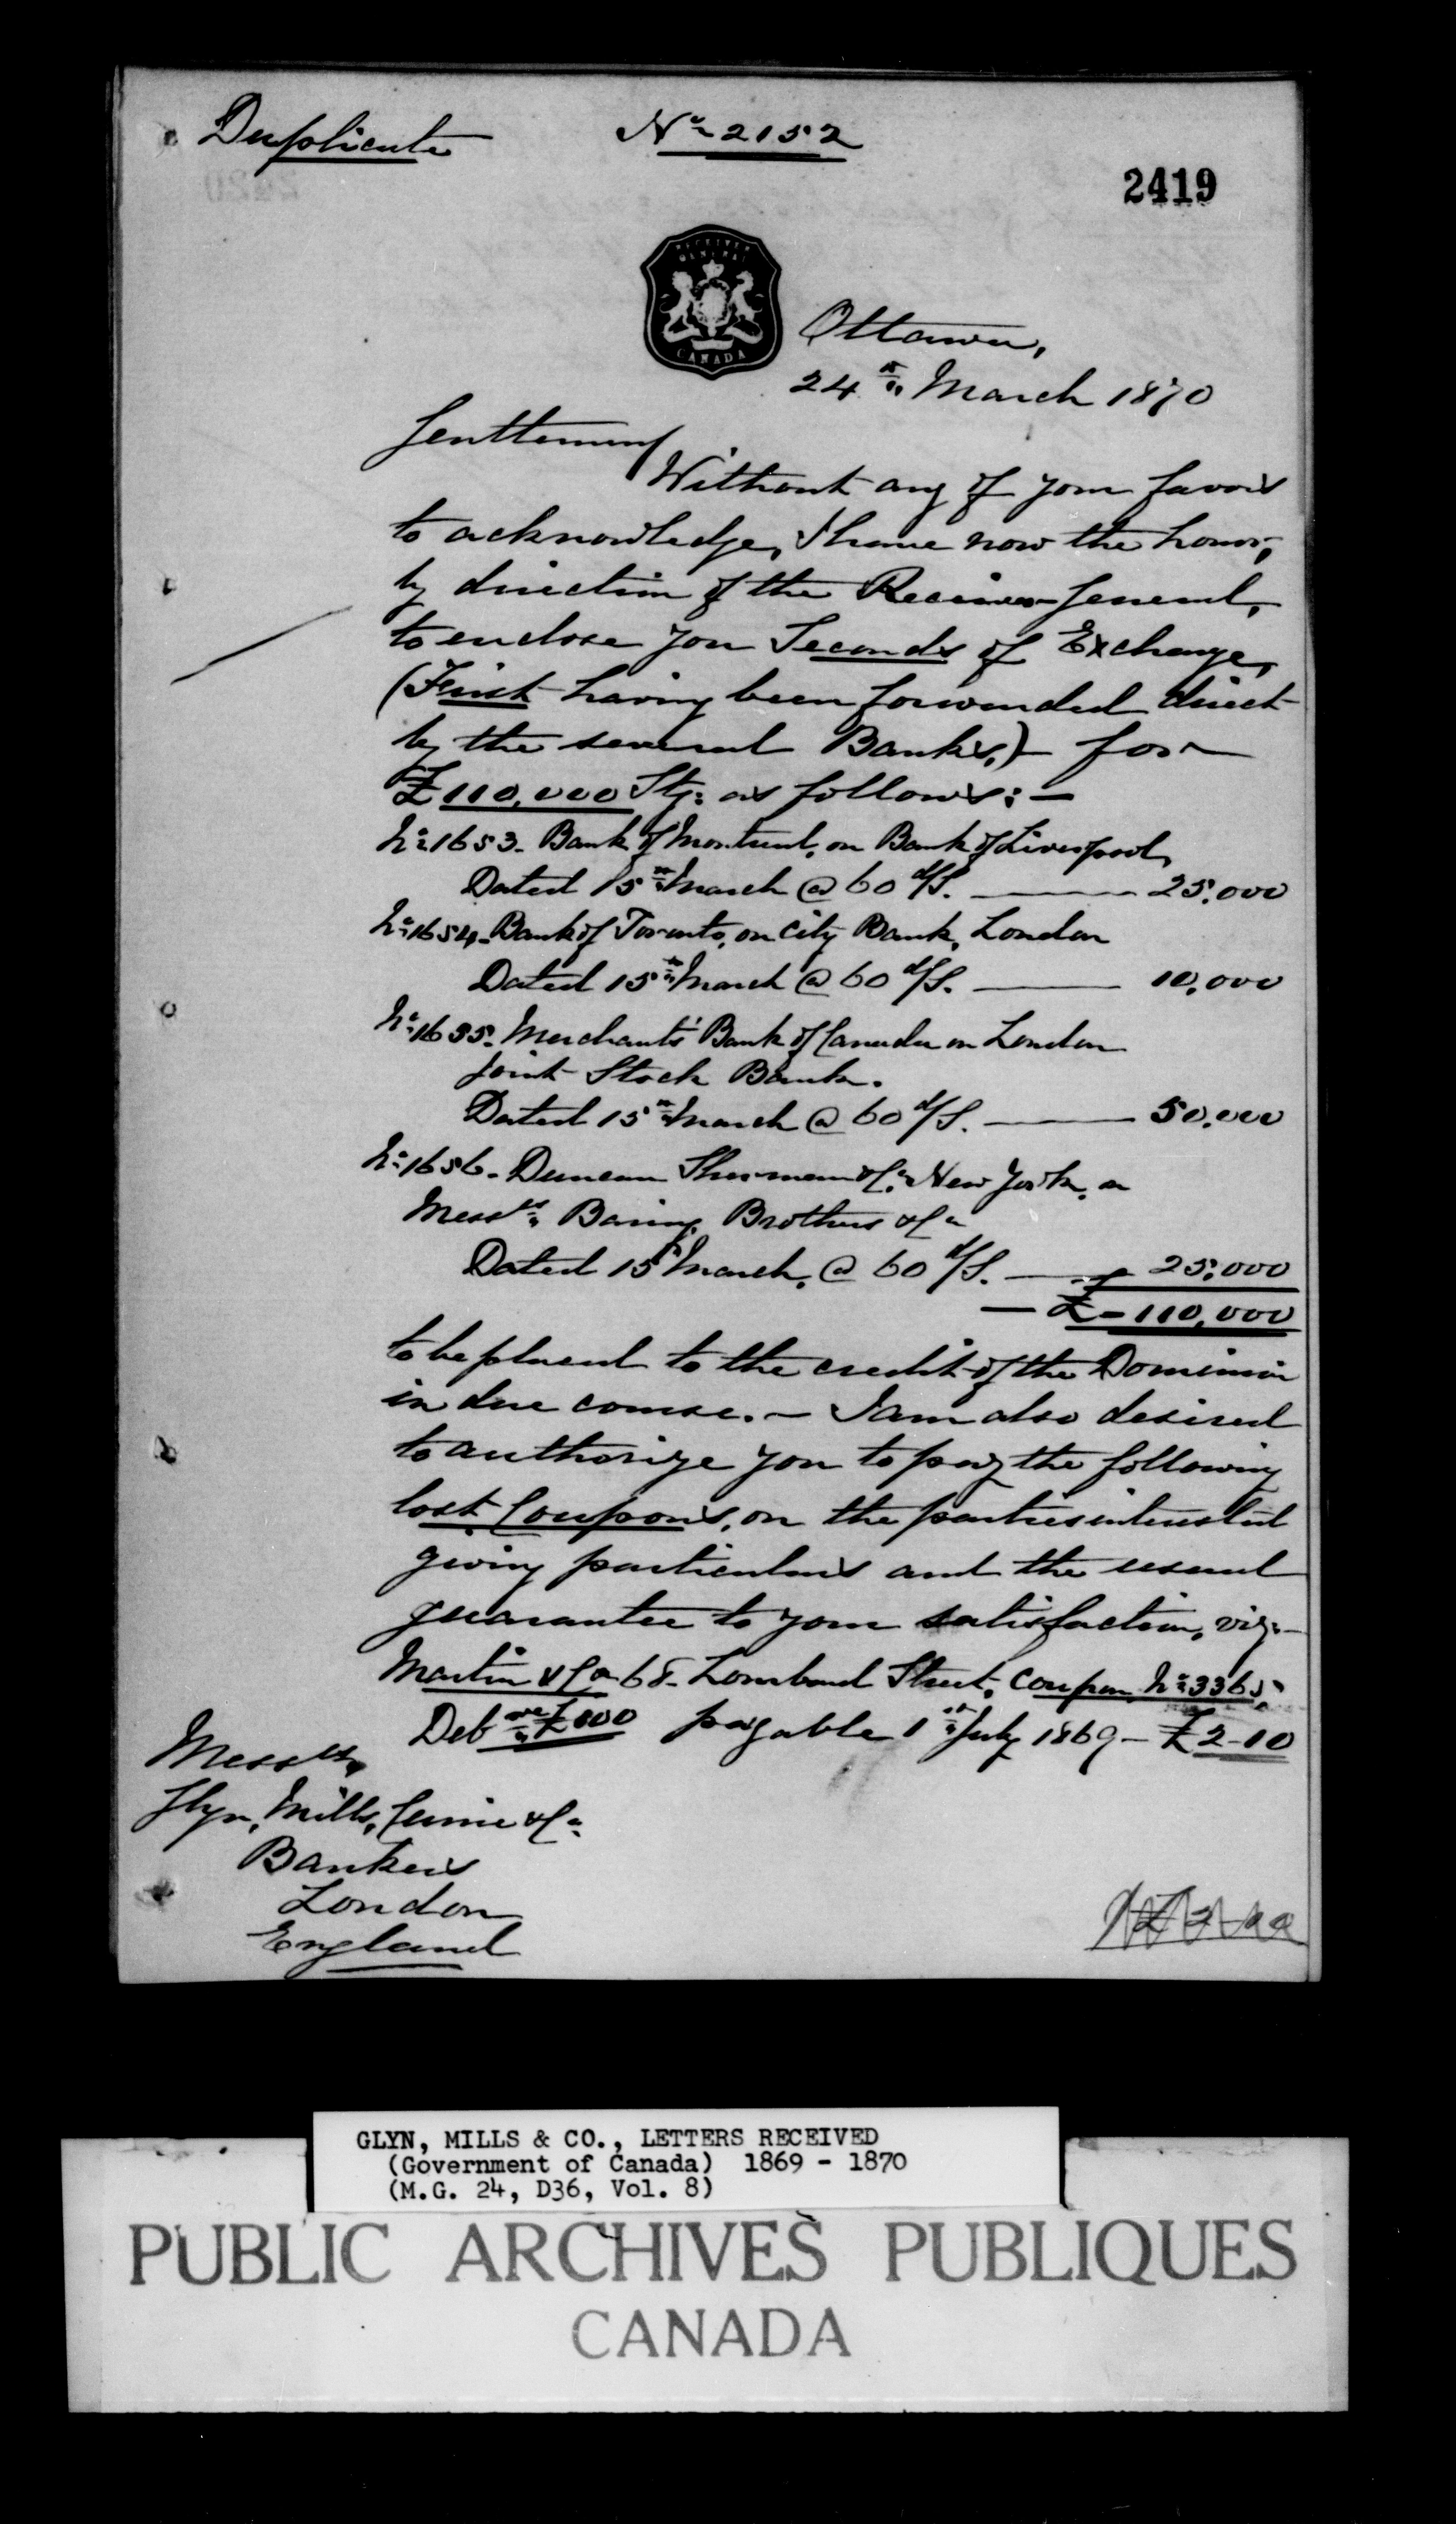 Duplicate
No 2152
2419
RECEIVER
GENERAL
CANADA
Ottawa,
24th March 1870
Gentlemen
Without any of your favors
to acknowledge, I have now the honor,
by direction of the Receiver General,
to enclose you Seconds of Exchange,
(First having been forwarded direct
by the several Banks,) for
£110,000 Stg: as follows:—
No 1653. Bank of Montreal, on Bank of Liverpool,
Dated 15th March @ 60 d/S. — 25.000
No 1654. Bank of Toronto, on City Bank, London
Dated 15th March @ 60 d/S. — 10.000
No 1655. Merchants' Bank of Canada on London
Joint Stock Bank.
Dated 15th March @ 60 d/S. — 50.000
No 1656. Duncan Sherman & Co. New York, on
Messrs Baring Brothers & Co
Dated 15th March, @ 60 d/S. — 25.000
— £ — 110,000
to be placed to the credit of the Dominion
in due course. — I am also desired
to authorize you to pay the following
lost Coupons, on the parties interested
giving particulars and the usual
guarantee to your satisfaction, viz:—
Martin & Co 68. Lombard Street, Coupon No 3365,
Deb're £100 payable 1st July 1869 — £2-10
Messrs
Glyn, Mills, Currie & Co.
Bankers
London
England
GLYN, MILLS & CO., LETTERS RECEIVED
(Government of Canada) 1869 - 1870
(M.G. 24, D36, Vol. 8)
PUBLIC ARCHIVES PUBLIQUES
CANADA